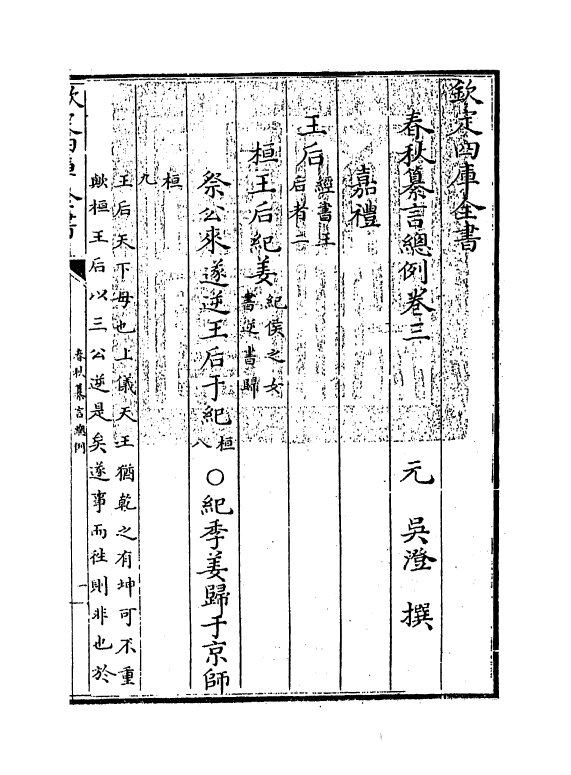 欽定四庫全書
春秋纂言總例卷三
元　吳澄　撰
嘉禮
王后經書王后者二
桓王后紀姜紀侯之女書逆書歸
祭公來遂逆王后于紀桓八○紀季姜歸于京師
桓九
王后天下母也上儀天王猶乾之有坤可不重
歟桓王后以三公逆是矣遂事而往則非也於
欽定四庫全書
春秋纂言總例
一